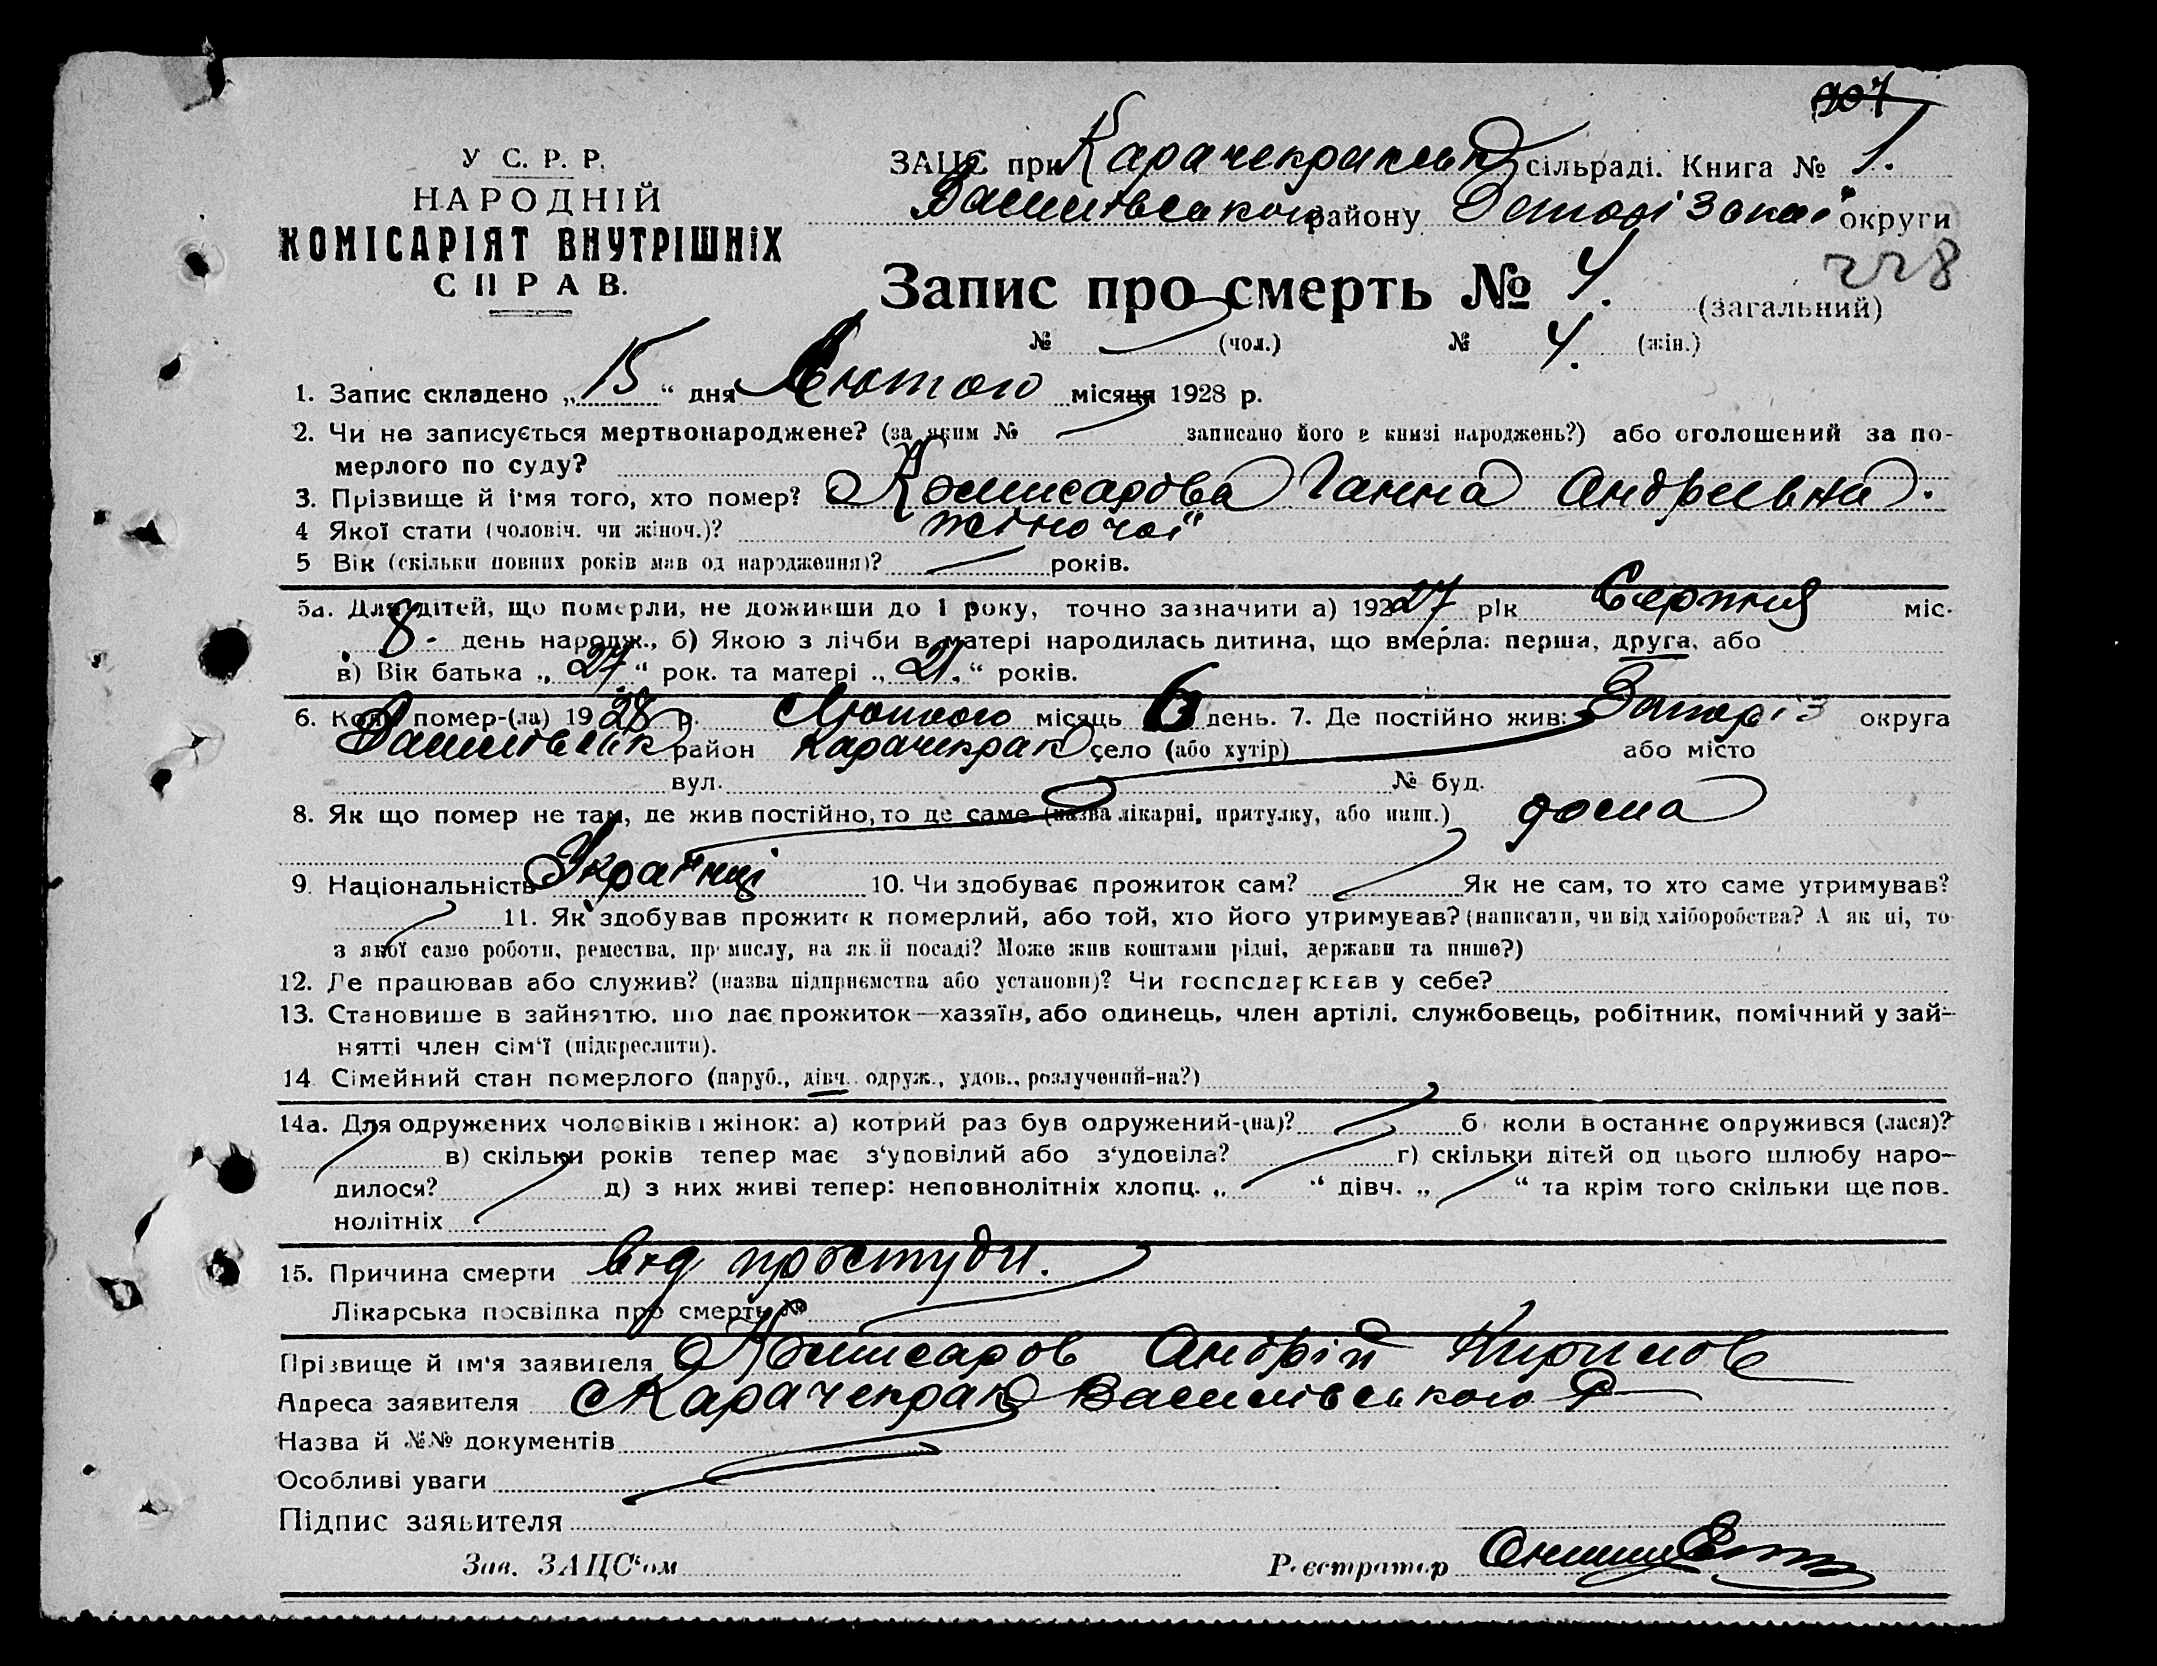 907
У С. Р. Р.
НАРОДНІЙ
КОМІСАРІЯТ ВНУТРІШНІХ
СПРАВ.
ЗАЦС при Карачекракськ сільраді. Книга № 1.
Василівсакого району Запорізької округи
228
Запис про смерть № 4. (загальний)
№ (чол.) № 4. (жін.)
1. Запис складено „15“ дня Лютого місяця 1928 р.
2. Чи не записується мертвонароджене? (за яким № записано його в книзі народжень?) або оголошений за по-
мерлого по суду?
3. Прізвище й і'мя того, хто помер? Комисарова Ганна Андреевна.
4 Якої стати (чоловіч. чи жіноч.)? жіночої
5 Вік (скільки повних років мав од народження)? років.
5а. Для дітей, що померли, не доживши до 1 року, точно зазначити а) 192 27 рік Серпня міс.
8. день народж., б) Якою з лічби в матері народилась дитина, що вмерла: перша, друга, або
в) Вік батька „27.“ рок. та матері „21.“ років.
6. Коли помер-(ла) 1928 р. Лютого місяць 6 день. 7. Де постійно жив: Запоріз округа
Василівськ район Карачекрак село (або хутір) або місто
вул. № буд.
8. Як що помер не там, де жив постійно, то де саме (назва лікарні, притулку, або инш.) дома
9. Національність Українці 10. Чи здобуває прожиток сам? Як не сам, то хто саме утримував?
11. Як здобував прожиток померлий, або той, хто його утримував? (написати, чи від хліборобства? А як ні, то
з якої саме роботи, ремества, промислу, на якій посаді? Може жив коштами рідні, держави та инше?)
12. Де працював або служив? (назва підприємства або установи)? Чи господарював у себе?
13. Становище в зайняттю, що дає прожиток—хазяїн, або одинець, член артілі, службовець, робітник, помічний у зай-
нятті член сім'ї (підкреслити).
14 Сімейний стан померлого (паруб., дівч. одруж., удов., розлучений-на?)
14а. Для одружених чоловіків і жінок: а) котрий раз був одружений-(на)? б) коли в останнє одружився (лася)?
в) скільки років тепер має з'удовілий або з'удовіла? г) скільки дітей од цього шлюбу наро-
дилося? д) з них живі тепер: неповнолітніх хлопц. „ “ дівч. „ “ та крім того скільки ще пов.
нолітніх
15. Причина смерти від простуди.
Лікарська посвідка про смерть №
Прізвище й ім'я заявителя Комисаров Андрій Кирилов
Адреса заявителя с Карачекрак Василівського Р
Назва й №№ документів
Особливі уваги
Підпис заявителя
Зав. ЗАЦС'ом Реєстратор